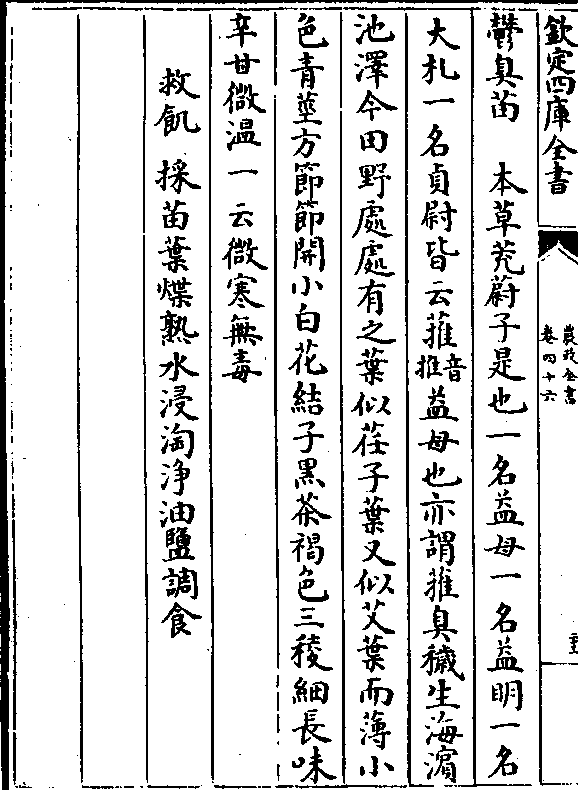 欽定四庫全書
農政全書
卷四十六
鬱臭苗　本草茺蔚子是也一名益母一名益明一名
大札一名貞蔚皆云蓷音推益母也亦謂蓷臭穢生海濵
池澤今田野處處有之葉似荏子葉又似艾葉而薄小
色青莖方節節開小白花結子黒茶褐色三稜細長味
辛甘微温一云微寒無毒
救飢　採苗葉煠熟水浸淘浄油鹽調食